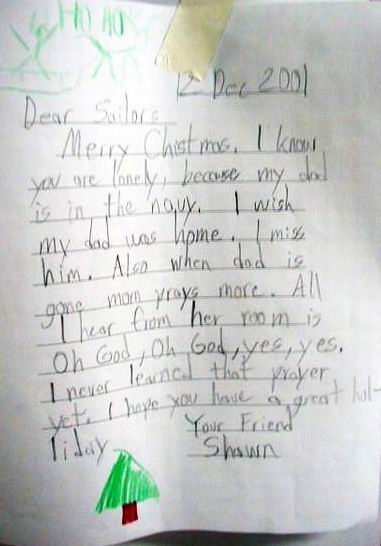 HO HO
12 Dec 2001
Dear Sailors
Merry Christmas. I know
you are lonely, because my dad
is in the navy. I wish
my dad was home. I miss
him. Also when dad is
gone mom prays more. All
I hear from her room is
Oh God, Oh God, yes, yes.
I never learned that prayer
yet. I hope you have a great hol-
iday
Your Friend
Shawn